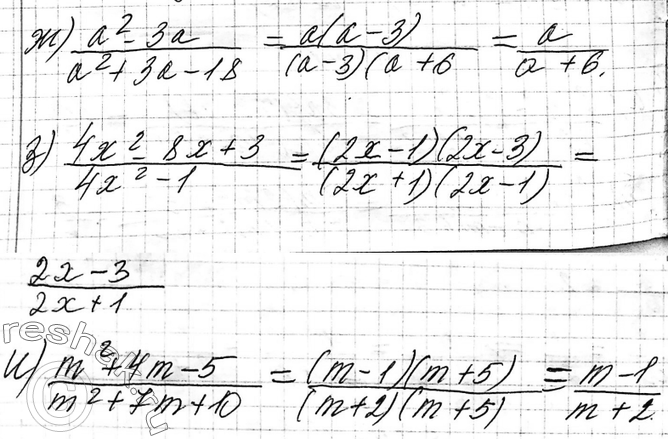 ж) (a² - 3a)/(a² + 3a - 18) = (a(a - 3))/((a - 3)(a + 6) = a/(a + 6).
з) (4x² - 8x + 3)/(4x² - 1) = ((2x - 1)(2x - 3))/((2x + 1)(2x - 1)) =
(2x - 3)/(2x + 1)
и) (m² + 4m - 5)/(m² + 7m + 10) = ((m - 1)(m + 5))/((m + 2)(m + 5)) = (m - 1)/(m + 2)